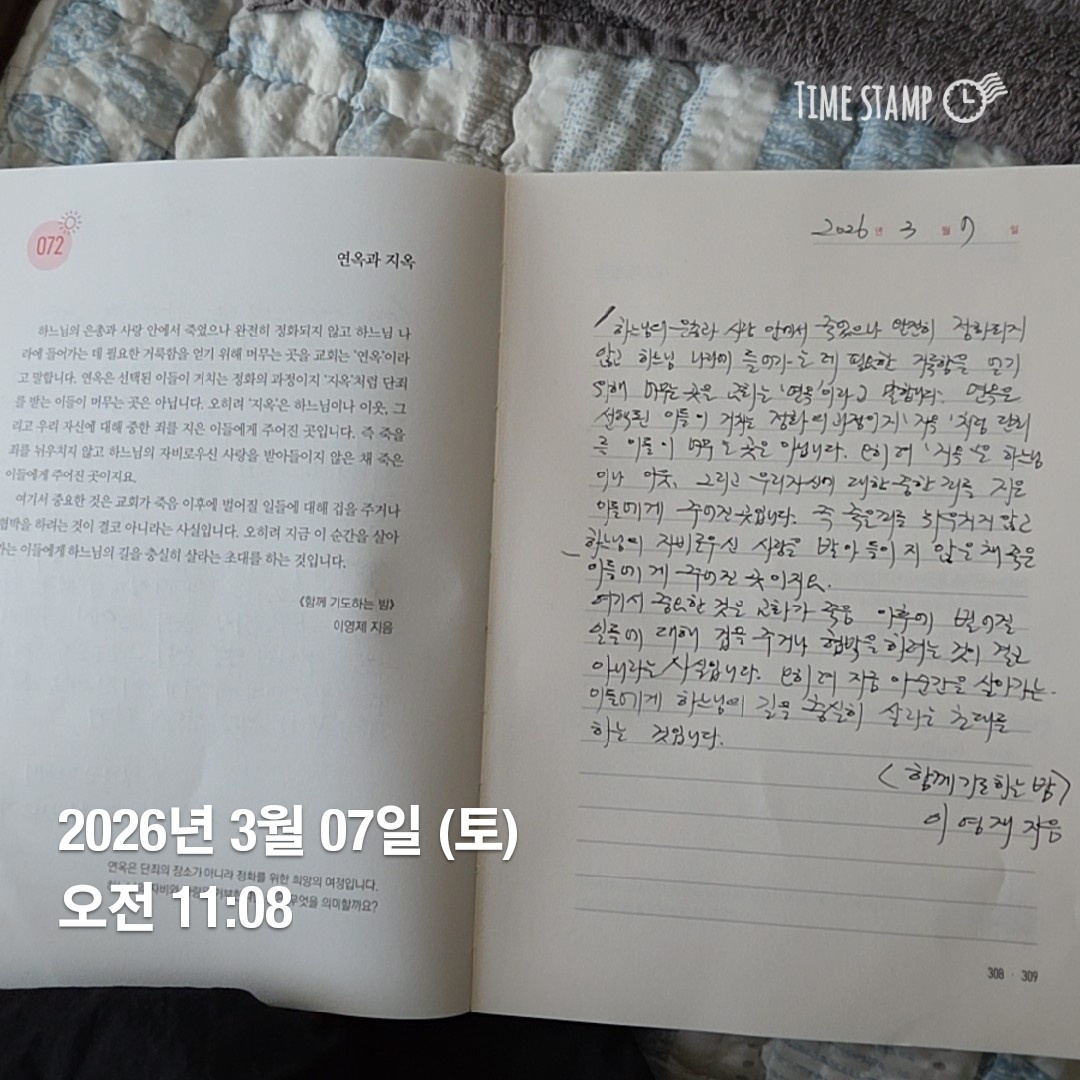 TIME STAMP
072
연옥과 지옥
하느님의 은총과 사랑 안에서 죽었으나 완전히 정화되지 않고 하느님 나
라에 들어가는 데 필요한 거룩함을 얻기 위해 머무는 곳을 교회는 '연옥'이라
고 말합니다. 연옥은 선택된 이들이 거치는 정화의 과정이지 '지옥'처럼 단죄
를 받는 이들이 머무는 곳은 아닙니다. 오히려 '지옥'은 하느님이나 이웃, 그
리고 우리 자신에 대해 중한 죄를 지은 이들에게 주어진 곳입니다. 즉 죽을
죄를 뉘우치지 않고 하느님의 자비로우신 사랑을 받아들이지 않은 채 죽은
이들에게 주어진 곳이지요.
여기서 중요한 것은 교회가 죽음 이후에 벌어질 일들에 대해 겁을 주거나
협박을 하려는 것이 결코 아니라는 사실입니다. 오히려 지금 이 순간을 살아
가는 이들에게 하느님의 길을 충실히 살라는 초대를 하는 것입니다.
《함께 기도하는 밤》
이영제 지음
연옥은 단죄의 장소가 아니라 정화를 위한 희망의 여정입니다.
무엇을 의미할까요?
2026년 3월 07일 (토)
오전 11:08
2026년 3월 7일
하느님의 은총과 사랑 안에서 죽었으나 완전히 정화되지
않고 하느님 나라에 들어가는데 필요한 거룩함을 얻기
위해 머무는 곳을 교회는 '연옥'이라고 말합니다. 연옥은
선택된 이들이 거치는 정화의 과정이지 '지옥'처럼 단죄
를 이들이 머무는 곳은 아닙니다. 오히려 '지옥'은 하느님
이나 이웃, 그리고 우리자신에 대한 중한 죄를 지은
이들에게 주어진 곳입니다. 즉 죽을죄를 뉘우치지 않고
하느님의 자비로우신 사랑을 받아들이지 않을 채 죽은
이들에게 주어진 곳이지요.
여기서 중요한 것은 교회가 죽음 이후에 벌어질
일들에 대해 겁을 주거나 협박을 하려는 것이 결코
아니라는 사실입니다. 오히려 지금 이순간을 살아가는
이들에게 하느님의 길을 충실히 살라는 초대를
하는 것입니다.
<함께 기도하는 밤>
이영제 지음
308 · 309